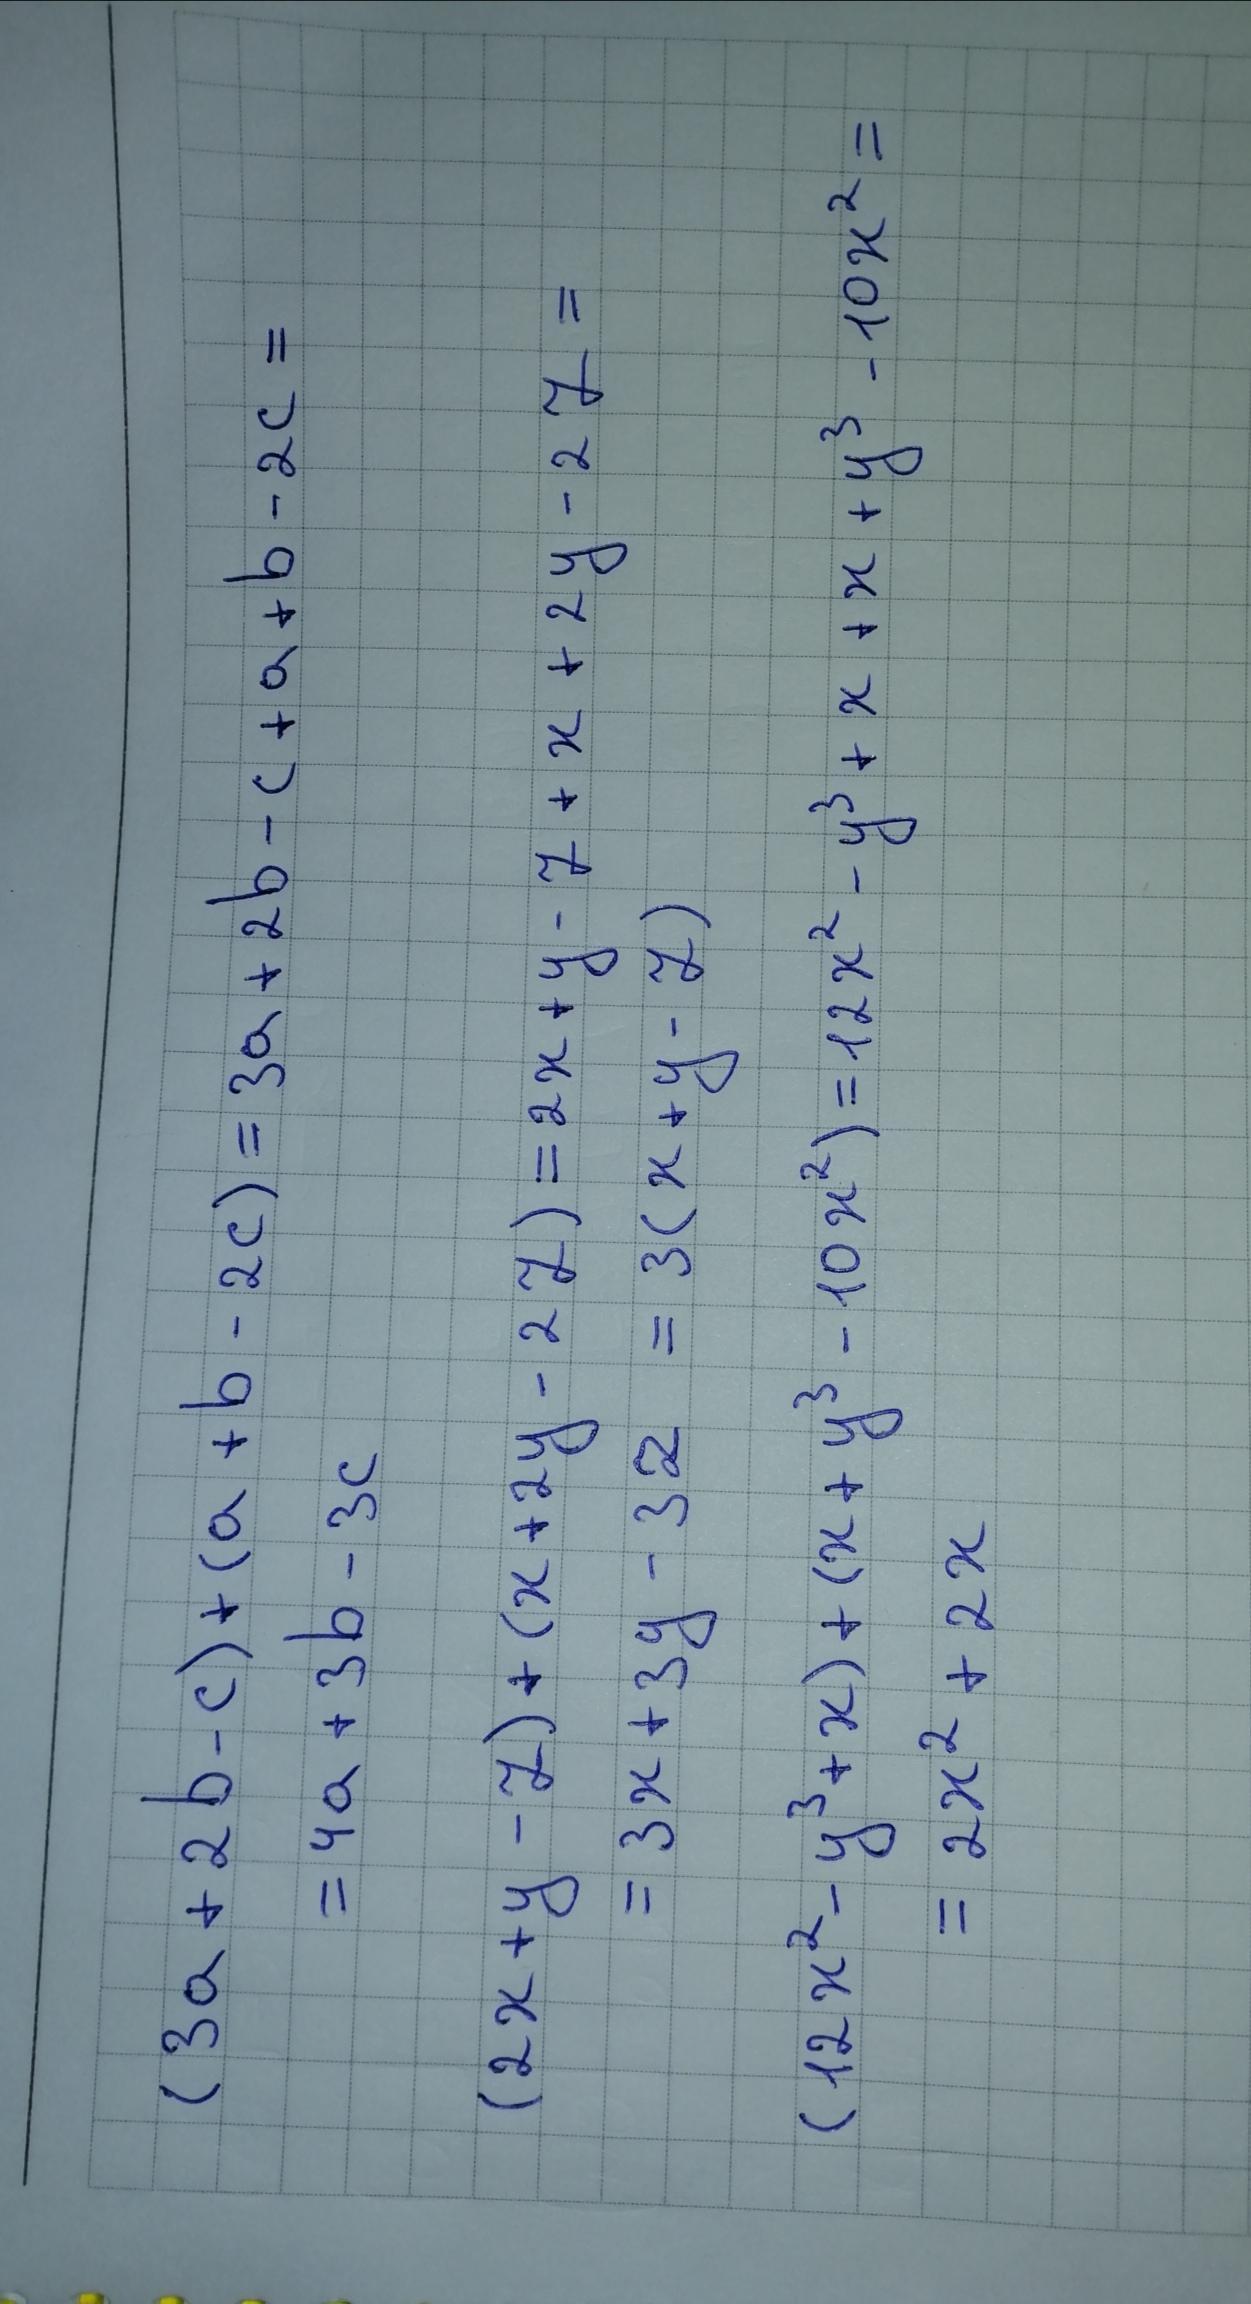 (3a + 2b - c) + (a + b - 2c) = 3a + 2b - c + a + b - 2c =
= 4a + 3b - 3c
(2x + y - z) + (x + 2y - 2z) = 2x + y - z + x + 2y - 2z =
= 3x + 3y - 3z = 3(x + y - z)
(12x² - y³ + x) + (x + y³ - 10x²) = 12x² - y³ + x + x + y³ - 10x² =
= 2x² + 2x